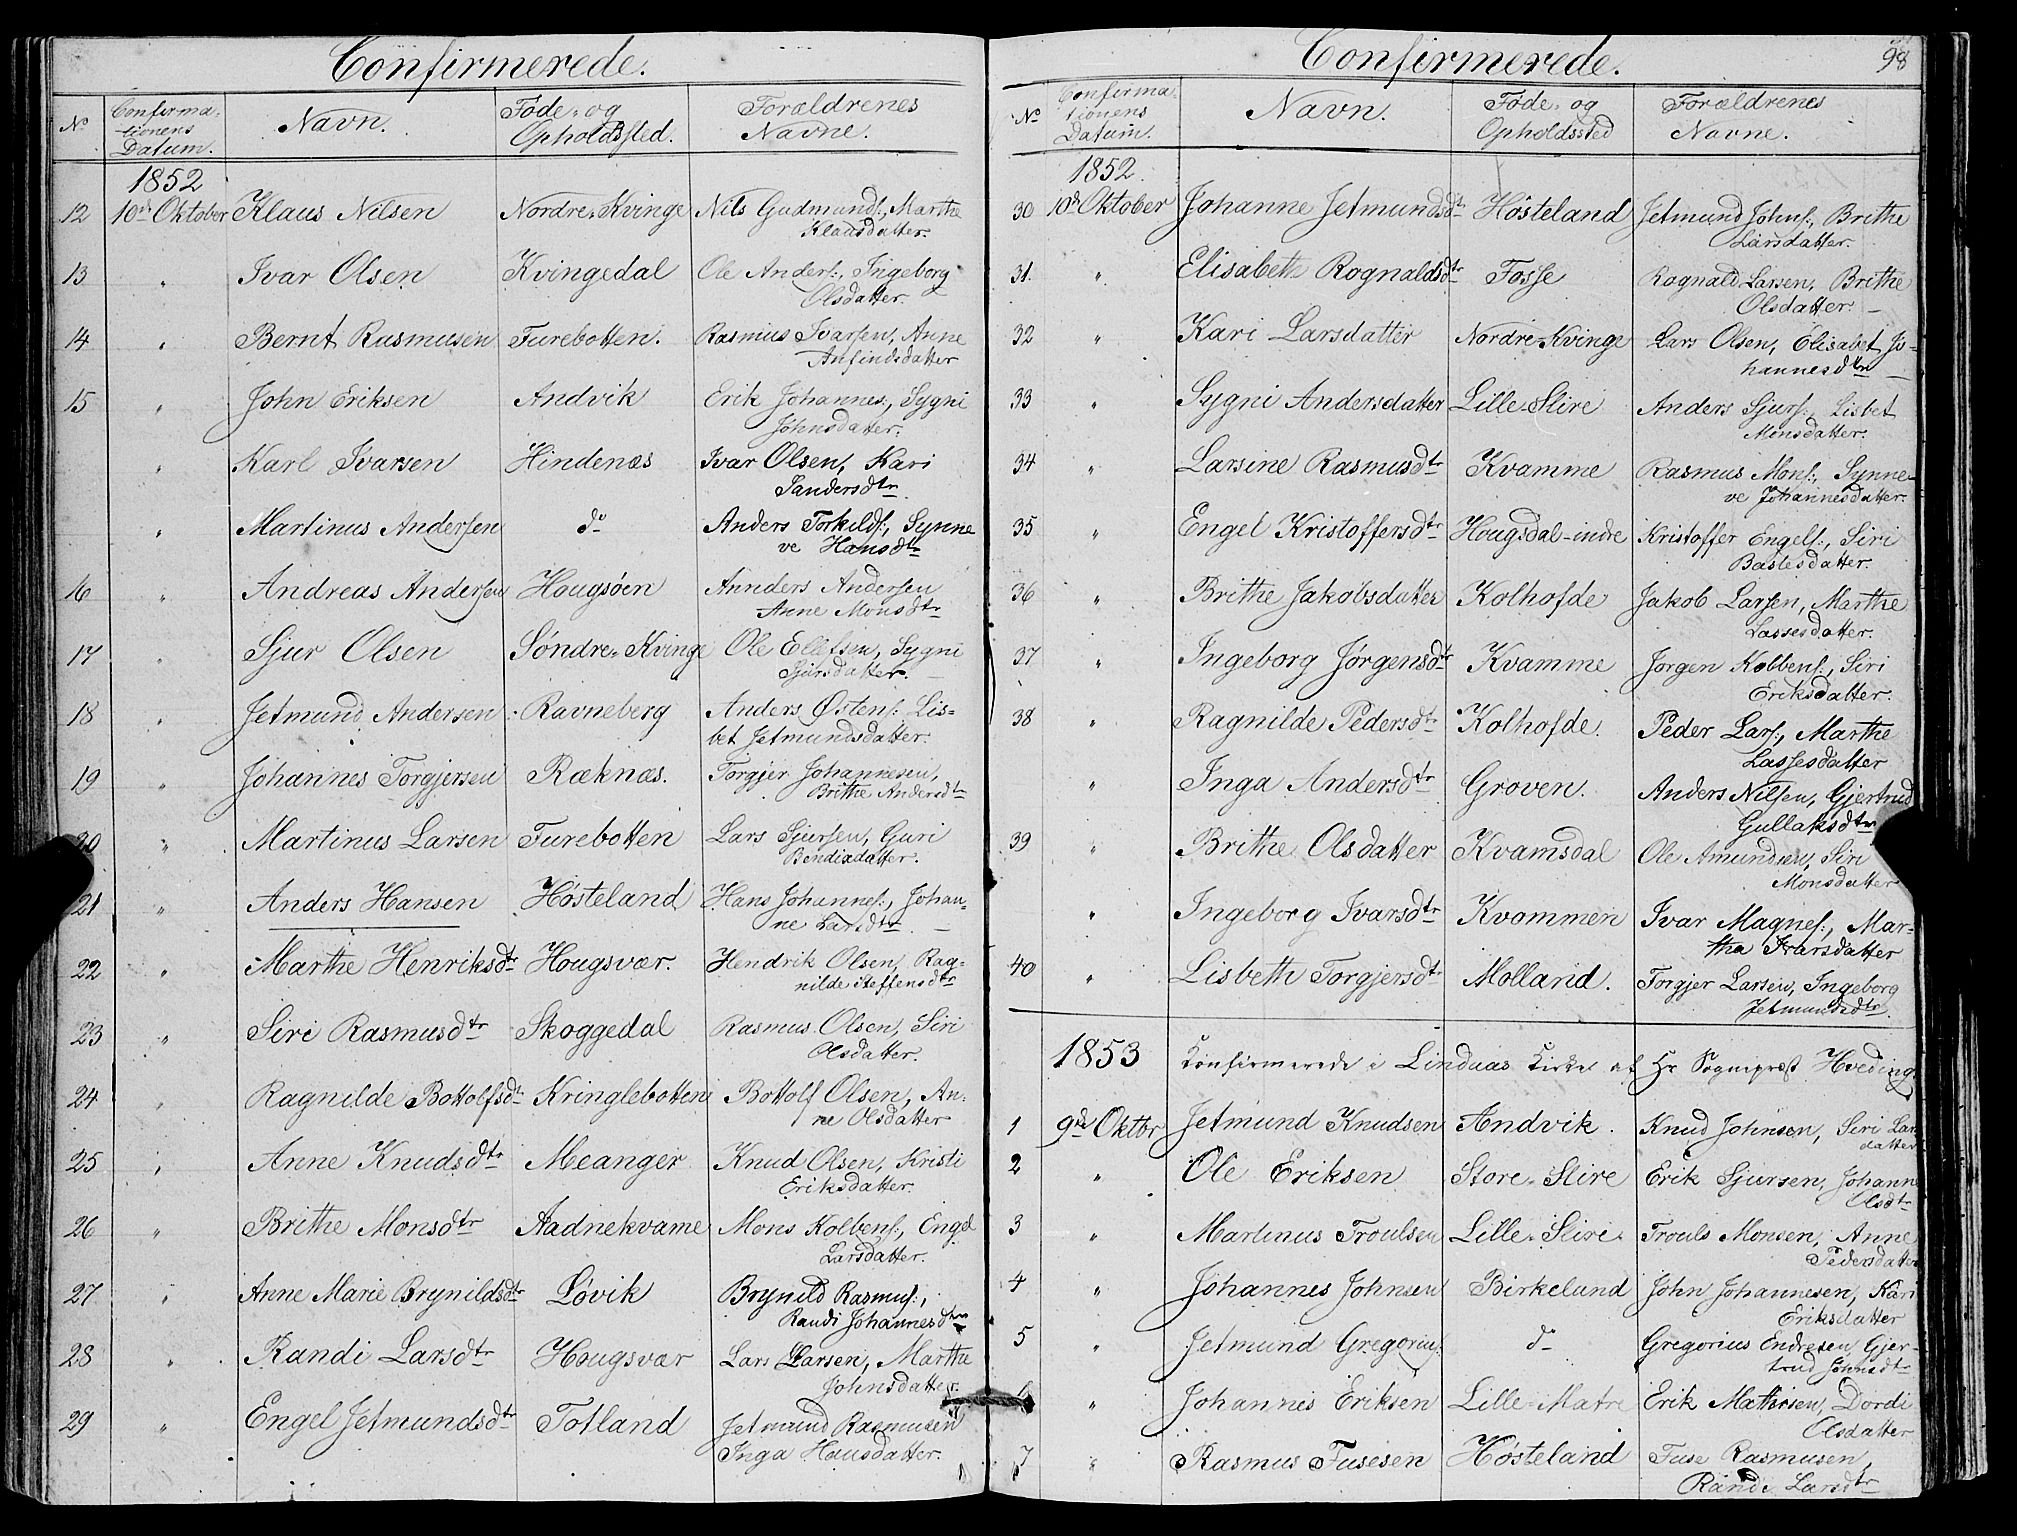 Confirmerede.
No Confirmationens Datum. Navn. Føde- og Opholdssted. Forældrenes Navne.
1852
12 10de Oktober Klaus Nilsen Nordre-Kvinge Nils Gudmunds:, Marthe
Klaasdatter.
13 " Ivar Olsen Kvingedal Ole Anders:, Ingeborg
Olsdatter.
14 " Bernt Rasmusen Furebotten. Rasmus Ivarsen, Anne
Anfindsdatter
15 " John Eriksen Andvik Erik Johannes:, Sygni
Johnsdatter.
" Karl Ivarsen Hindenæs Ivar Olsen, Kari
Sandersdtr.
" Martinus Andersen do Anders Torkilds:, Synne
ve Hansdtr
16 " Andreas Andersen Hougsøen Annders Andersen
Anne Monsdtr
17 " Sjur Olsen Søndre-Kvinge Ole Ellefsen, Sygni
Sjursdatter.
18 " Jetmund Andersen Ravneberg Anders Østens: Lis-
bet Jetmundsdatter.
19 " Johannes Torgjersen Ræknæs. Torgjer Johannesen,
Brithe Andersdtr
20 " Martinus Larsen Furebotten Lars Sjursen, Guri
Bendixdatter.
21 " Anders Hansen Høsteland Hans Johannes:, Johan-
ne Larsdtr. -
22 " Marthe Henriksdtr Hougsvær. Hendrik Olsen, Rag-
nilde Steffensdtr
23 " Siri Rasmusdtr Skoggedal Rasmus Olsen, Siri
Olsdatter.
24 " Ragnilde Bottolfsdtr Kringlebotten Bottolf Olsen, An-
ne Olsdatter
25 " Anne Knudsdtr Meanger Knud Olsen, Kristi
Eriksdatter.
26 " Brithe Monsdtr Aadnekvame Mons Kolbens:, Engel
Larsdatter.
27 " Anne Marie Brynildsdtr Løvik Brynild Rasmus:,
Randi Johannesdtr
28 " Randi Larsdtr Hougsvær Lars Larsen, Marthe
Johnsdatter.
29 " Engel Jetmundsdtr Totland Jetmund Rasmusen
Inga Hansdatter.
Confirmerede. 98
No Confirmationens Datum. Navn. Føde- og Opholdssted Forældrenes Navne.
1852.
30 10de Oktober Johanne Jetmundsdtr Høsteland Jetmund Johns:, Brithe
Larsdatter.
31. " Elisabeth Rognaldsdtr Fosse Rognald Larsen, Brithe
Olsdatter. -
32 " Kari Larsdatter Nordre-Kvinge Lars Olsen, Elisabet Jo-
hannesdtr -
33 " Sygni Andersdatter Lille-Slire Anders Sjurs:, Lisbet
Monsdatter.
34 " Larsine Rasmusdtr Kvamme Rasmus Mons:, Synne-
ve Johannesdatter.
35 " Engel Kristoffersdtr Hougsdal-indre Kristoffer Engels:, Siri
Bastesdatter.
36 " Brithe Jakobsdatter Kolhofde Jakob Larsen, Marthe
Lassesdatter.
37 " Ingeborg Jørgensdtr Kvamme Jørgen Kobbens:, Siri
Eriksdatter.
38 " Ragnilde Pedersdtr Kolhofde. Peder Lars:, Marthe
Lassesdatter
" Inga Andersdtr Groven. Anders Nilsen, Gjertrud
Gullaksdtr
39 " Brithe Olsdatter Kvamsdal Ole Amundsen, Siri
Monsdatter
" Ingeborg Ivarsdtr Kvammen Ivar Magnes:, Mar-
tha Ivarsdatter
40 " Lisbeth Torgjersdtr Molland. Torgjer Larsen, Ingeborg
Jetmundsdtr.
1853 Konfirmerede i Lindaas Kirke af Hr Sognepræst Hveding
1 9de Oktbr Jetmund Knudsen Andvik. Knud Johnsen, Siri Lars
datter
2 " Ole Eriksen Store-Slire Erik Sjursen, Johanne
Olsdtr
3 " Martinus Troulsen Lille-Slire Trouls Monsen, Anne
Pedersdatter
4 " Johannes Johnsen Birkeland John Johannesen, Kari
Eriksdatter
5 " Jetmund Gregorius: do Gregorius Endresen, Gjer-
trud Johnsdtr
6 " Johannes Eriksen Lille-Matre Erik Mathisen, Dordi
Olsdatter
7 " Rasmus Fusesen Høsteland Fuse Rasmusen,
Rande Larsdtr